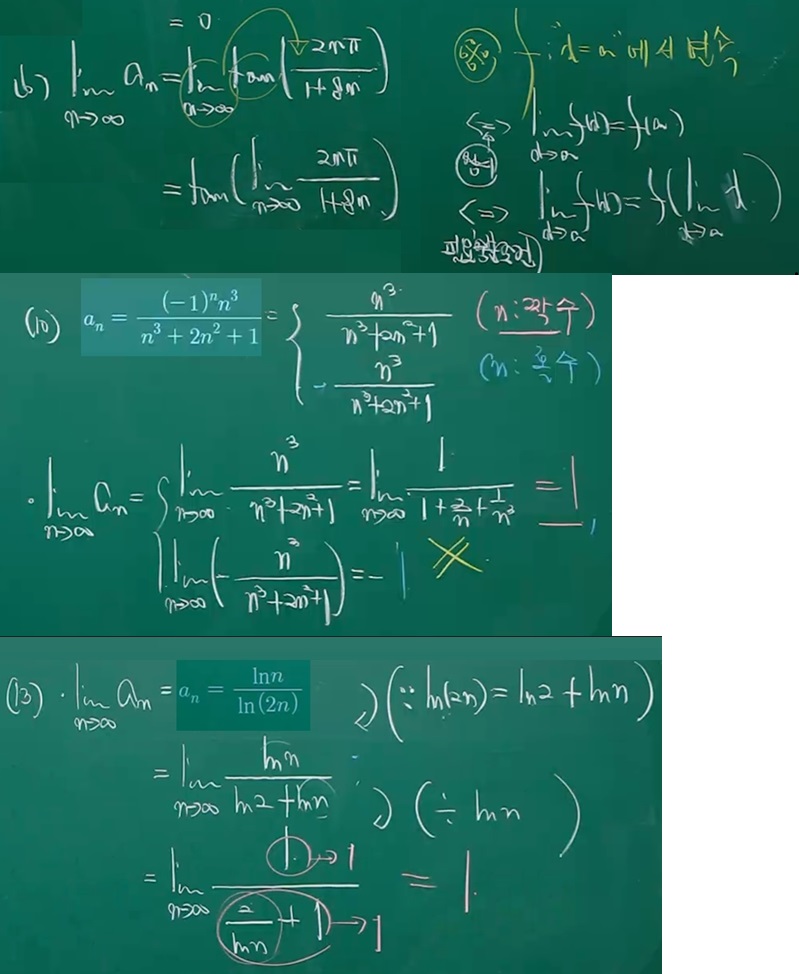 = 0
(6) lim_{n→∞} a_n = lim_{n→∞} tan(2nπ / 1+8n)
= tan(lim_{n→∞} 2nπ / 1+8n)
f : "x=a"에서 연속
⟺ lim_{x→a} f(x) = f(a)
⟺ lim_{x→a} f(x) = f(lim_{x→a} x)
(10) a_n = (-1)^n n^3 / n^3 + 2n^2 + 1 = { n^3 / n^3+2n^2+1 (n:짝수)
- n^3 / n^3+2n^2+1 (n:홀수)
· lim_{n→∞} a_n = { lim_{n→∞} n^3 / n^3+2n^2+1 = lim_{n→∞} 1 / 1 + 2/n + 1/n^3 = 1,
lim_{n→∞} (- n^3 / n^3+2n^2+1) = -1
(13) · lim_{n→∞} a_n = a_n = ln n / ln(2n) (∵ ln(2n) = ln2 + ln n)
= lim_{n→∞} ln n / ln2 + ln n (÷ ln n)
= lim_{n→∞} 1 →1 / 2/ln n + 1 →1 = 1.